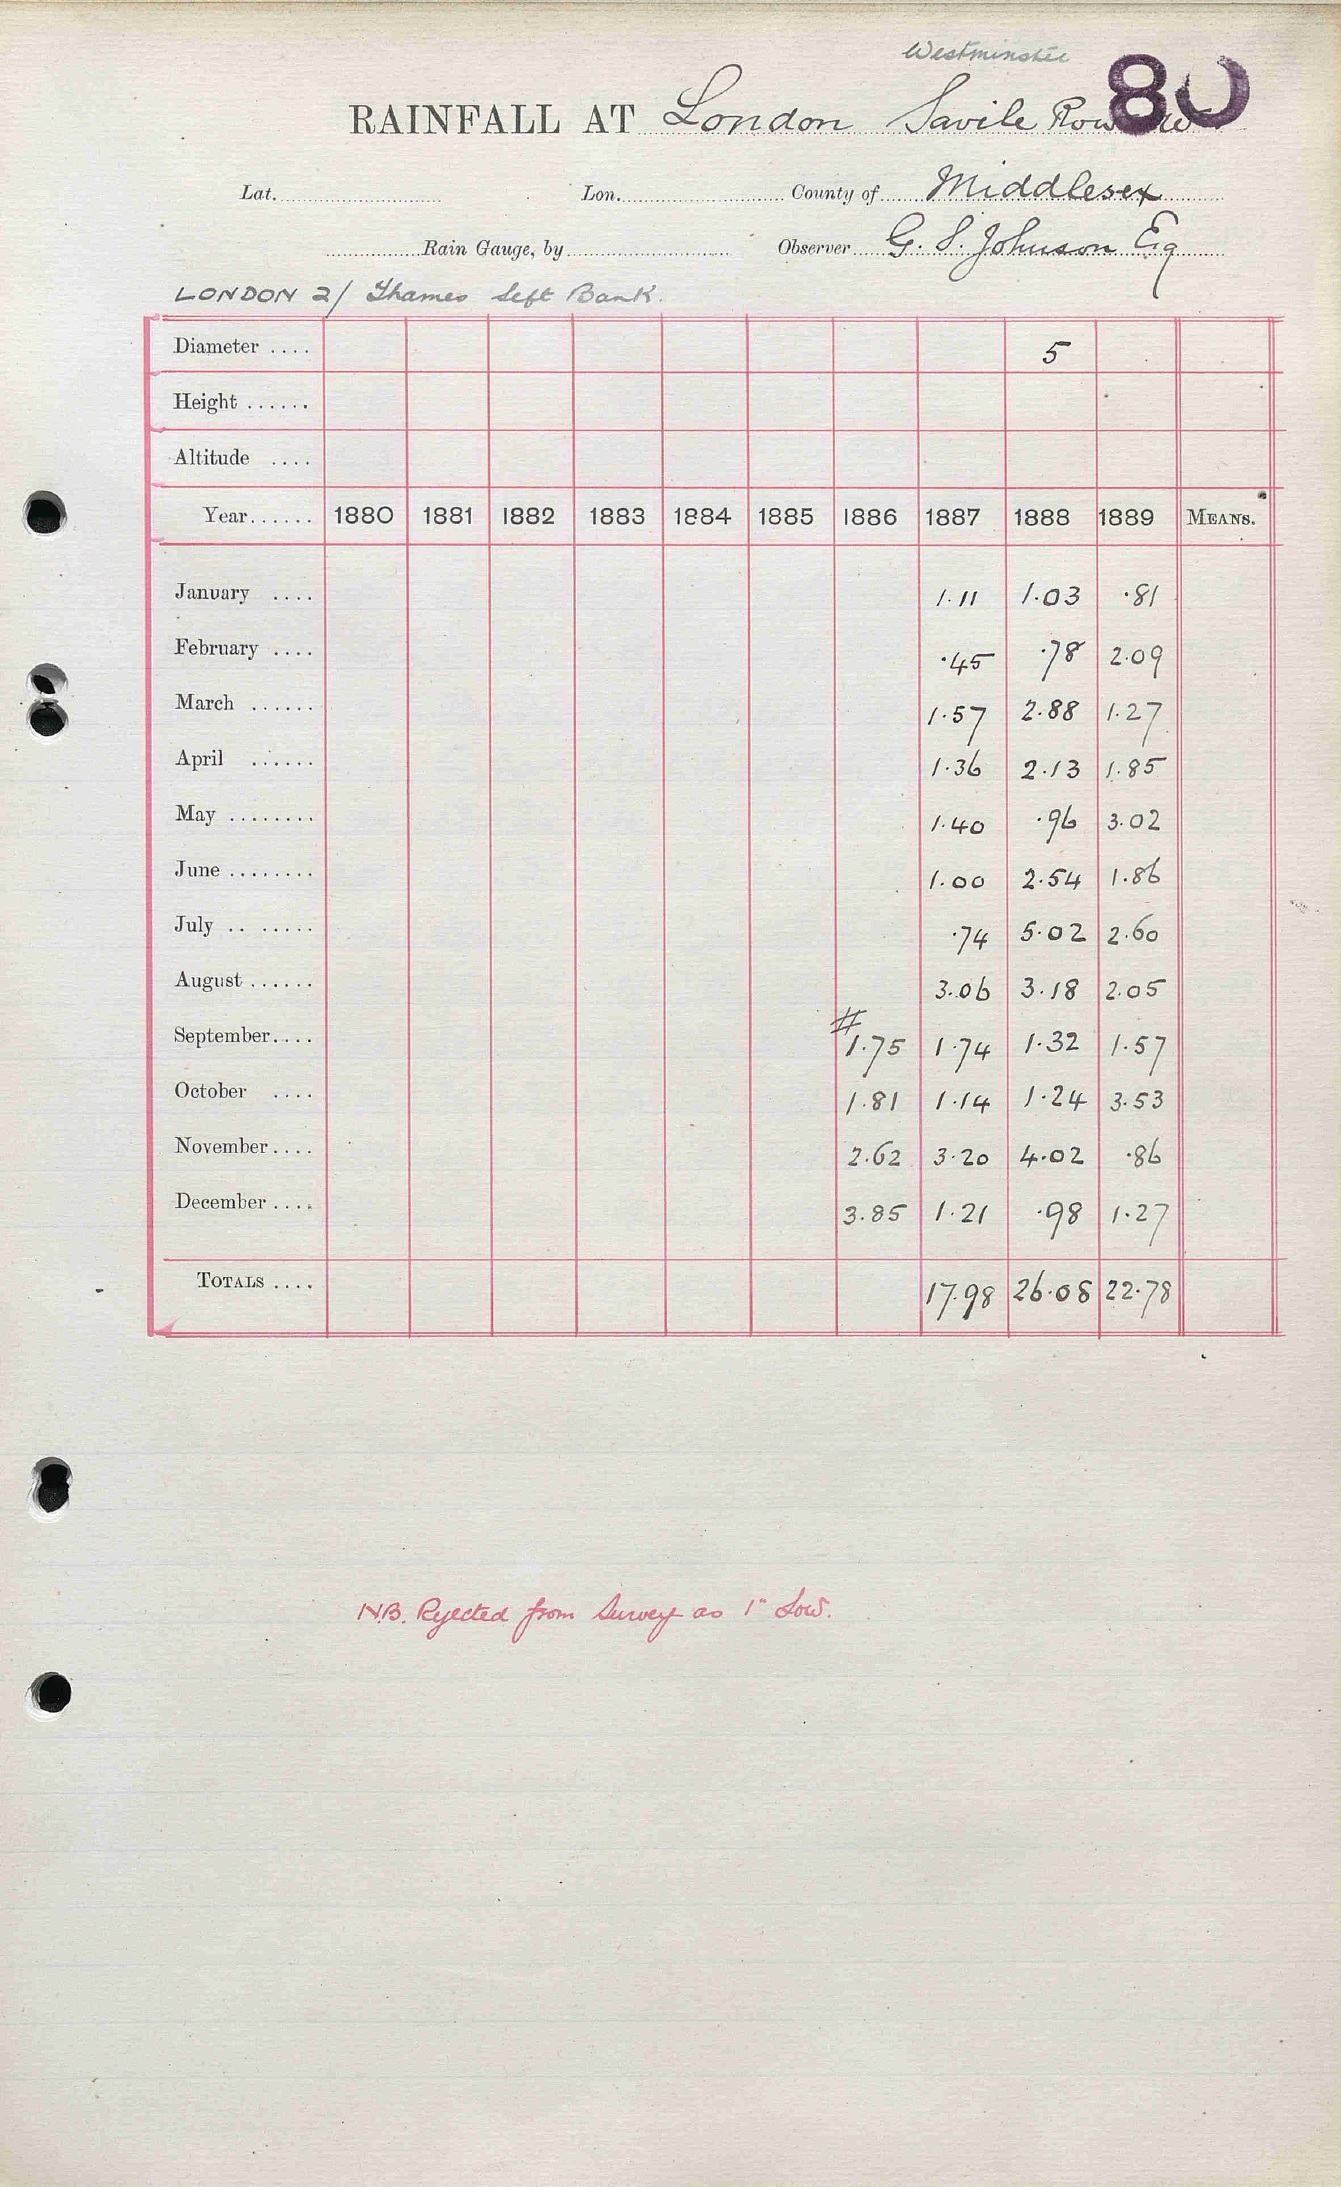 Westminster
80
RAINFALL AT London Savile Row W
Lat. Lon. County of Middlesex
Rain Gauge, by Observer G. S. Johnson Esq
LONDON 2/ Thames Left Bank.
Diameter .... 5
Height ......
Altitude ....
Year...... 1880 1881 1882 1883 1884 1885 1886 1887 1888 1889 MEANS.
January .... 1.11 1.03 .81
February .... .45 .78 2.09
March ...... 1.57 2.88 1.27
April ...... 1.36 2.13 1.85
May ........ 1.40 .96 3.02
June ........ 1.00 2.54 1.86
July .. ...... .74 5.02 2.60
August ...... 3.06 3.18 2.05
September.... # 1.75 1.74 1.32 1.57
October .... 1.81 1.14 1.24 3.53
November.... 2.62 3.20 4.02 .86
December .... 3.85 1.21 .98 1.27
TOTALS .... 17.98 26.08 22.78
N.B. Rejected from Survey as 1" Low.